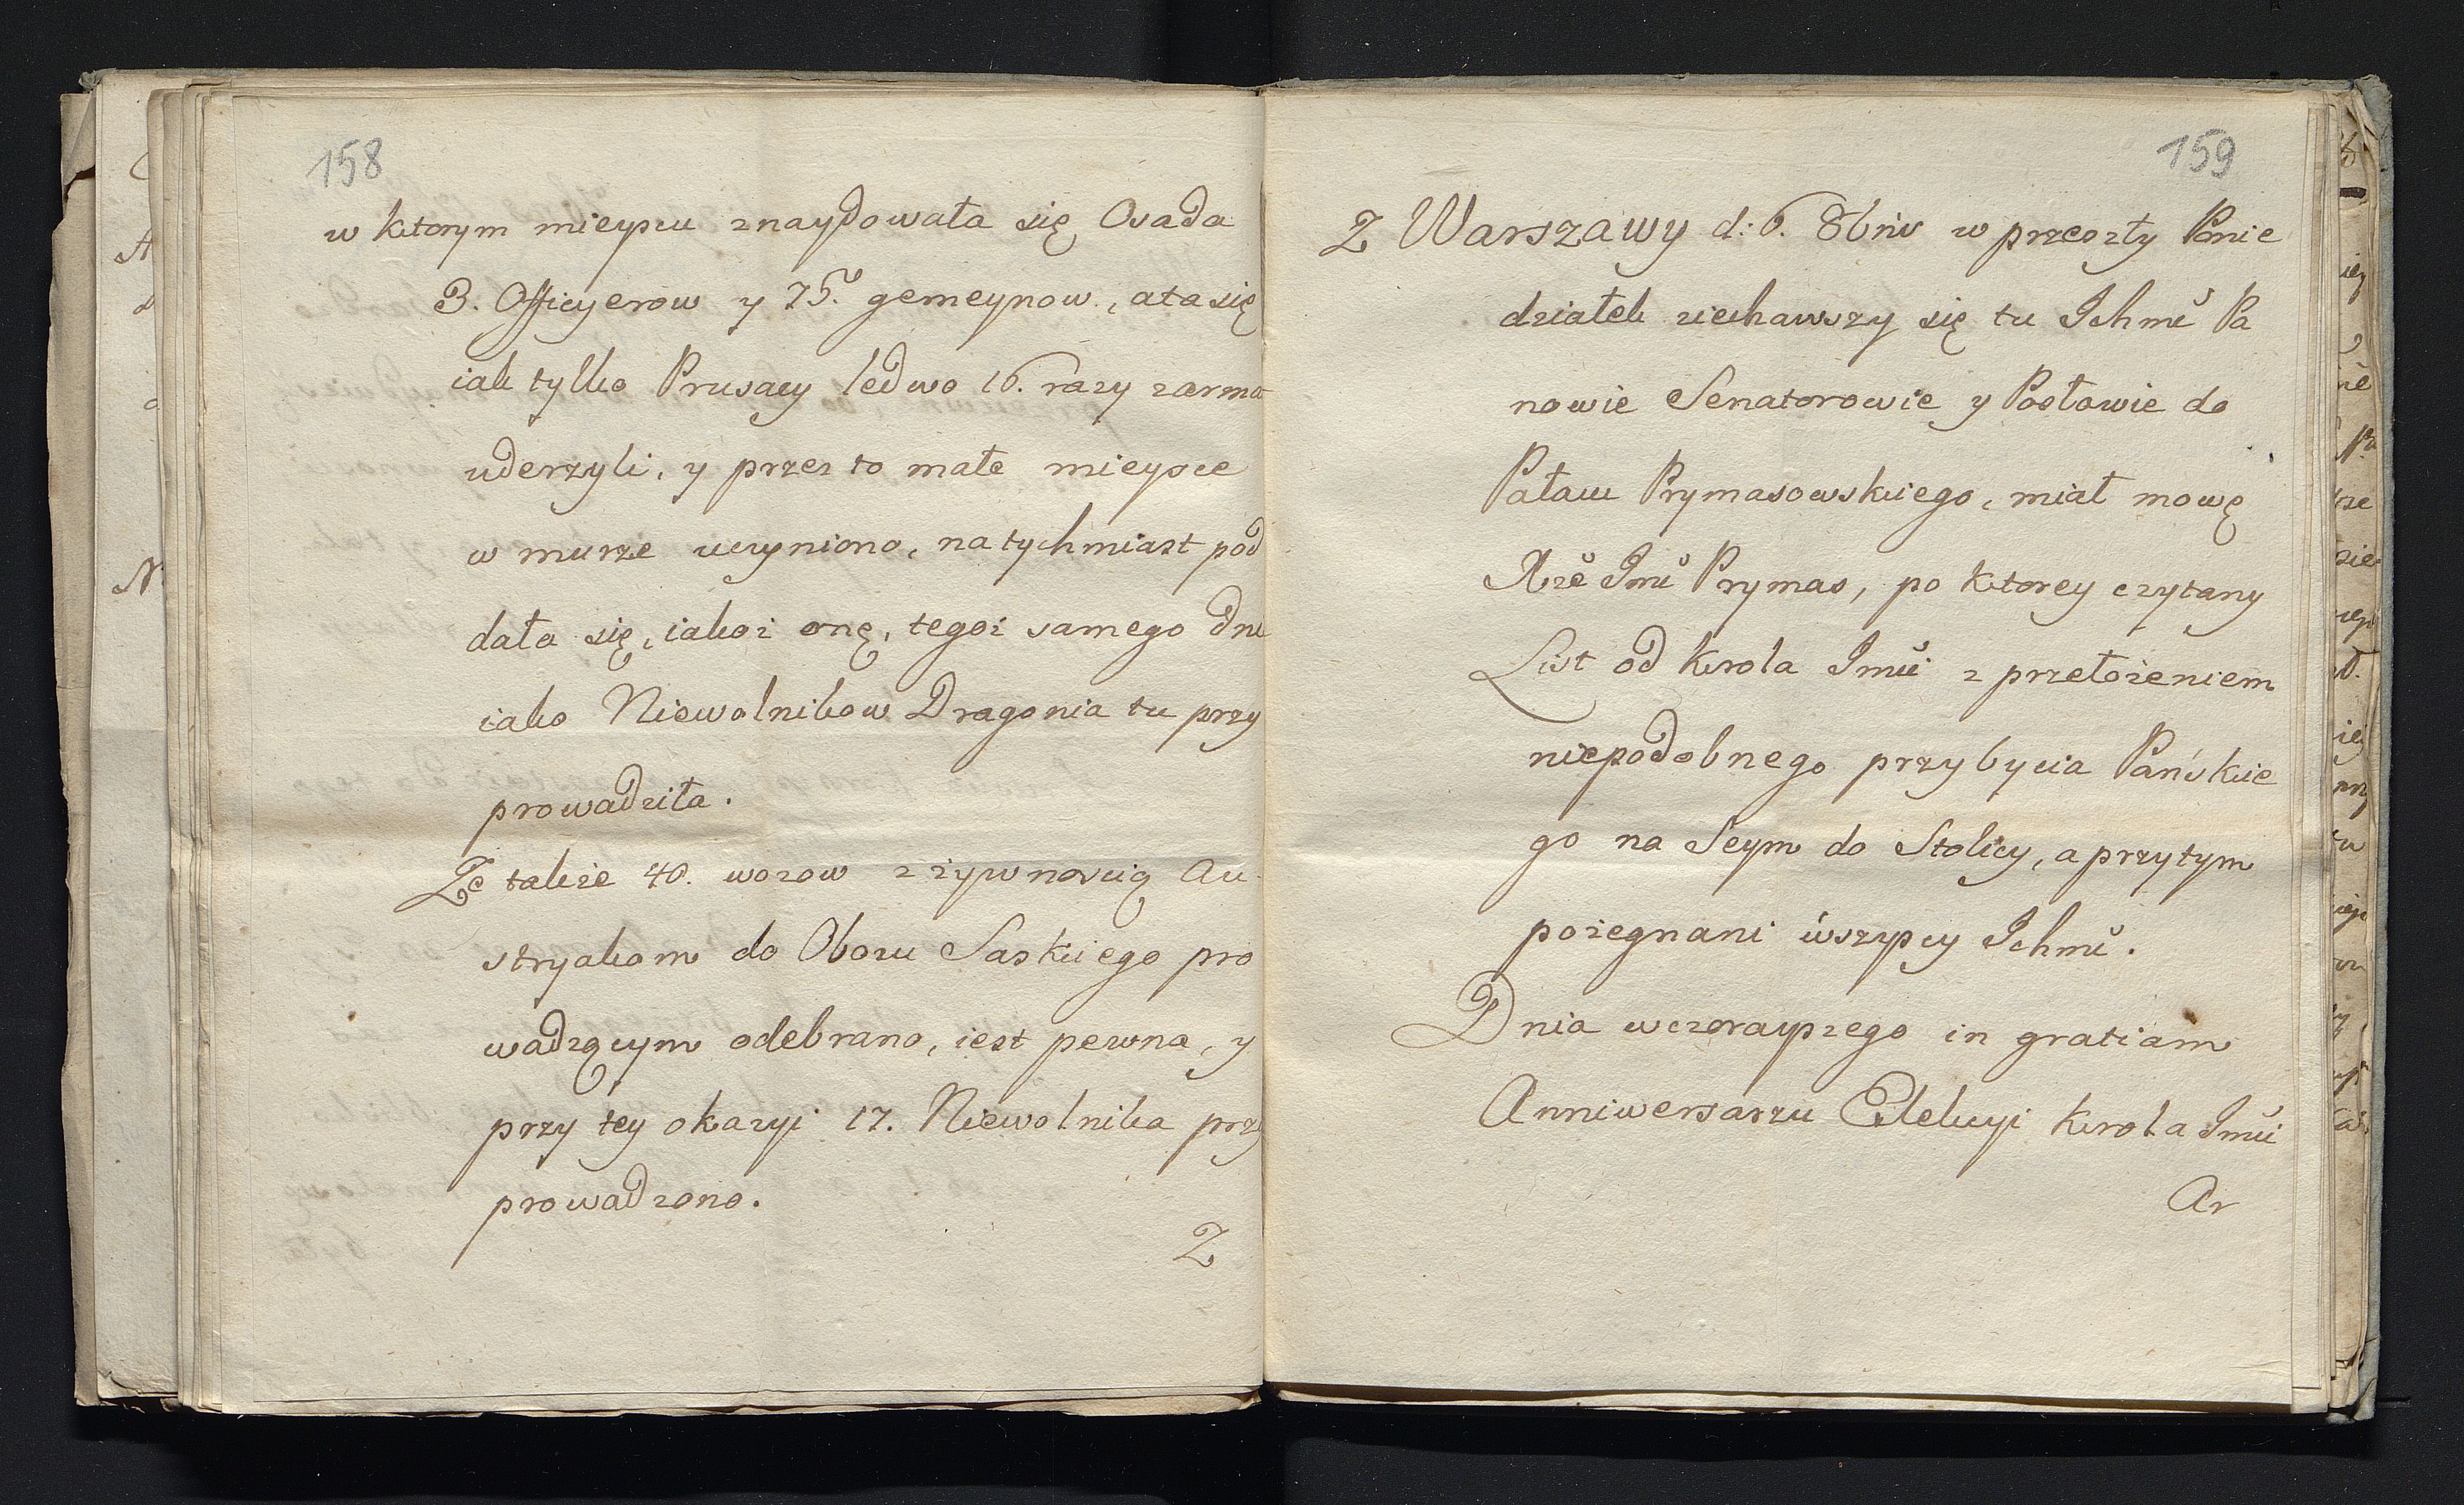 158
w ktorym mieyscu znaydowała się Osada
3. Officyerow y 75. gemeynow, a ta się
iak tylko Prusacy ledwo 16. razy z arma
uderzyli, y przez to małe mieysce
w murze uczyniono, natychmiast pod
dała się, iakoż onę, tegoż samego dn
iako Niewolnikow Dragonia tu przy
prowadziła.
Że także 40. wozow z żywnoscią Au
stryakom do Obozu Saskiego pro
wadzącym odebrano, iest pewna, y
przy tey okazyi 17. Niewolnika przy
prowadzono.
Z
159
Z Warszawy d: 6. 8bris w przeszły Ponie
działek ziechawszy się tu Ichmć Pa
nowie Senatorowie y Posłowie do
Pałacu Prymasowskiego, miał mowę
Xże Jmć Prymas, po ktorey czytany
List od Krola Jmći z przełożeniem
niepodobnego przybycia Pańskie
go na Seym do Stolicy, a przytym
pożegnani wszyscy Ichmć.
Dnia wczorayszego in gratiam
Anniwersarzu Elekcyi Krola Jmći
Ar